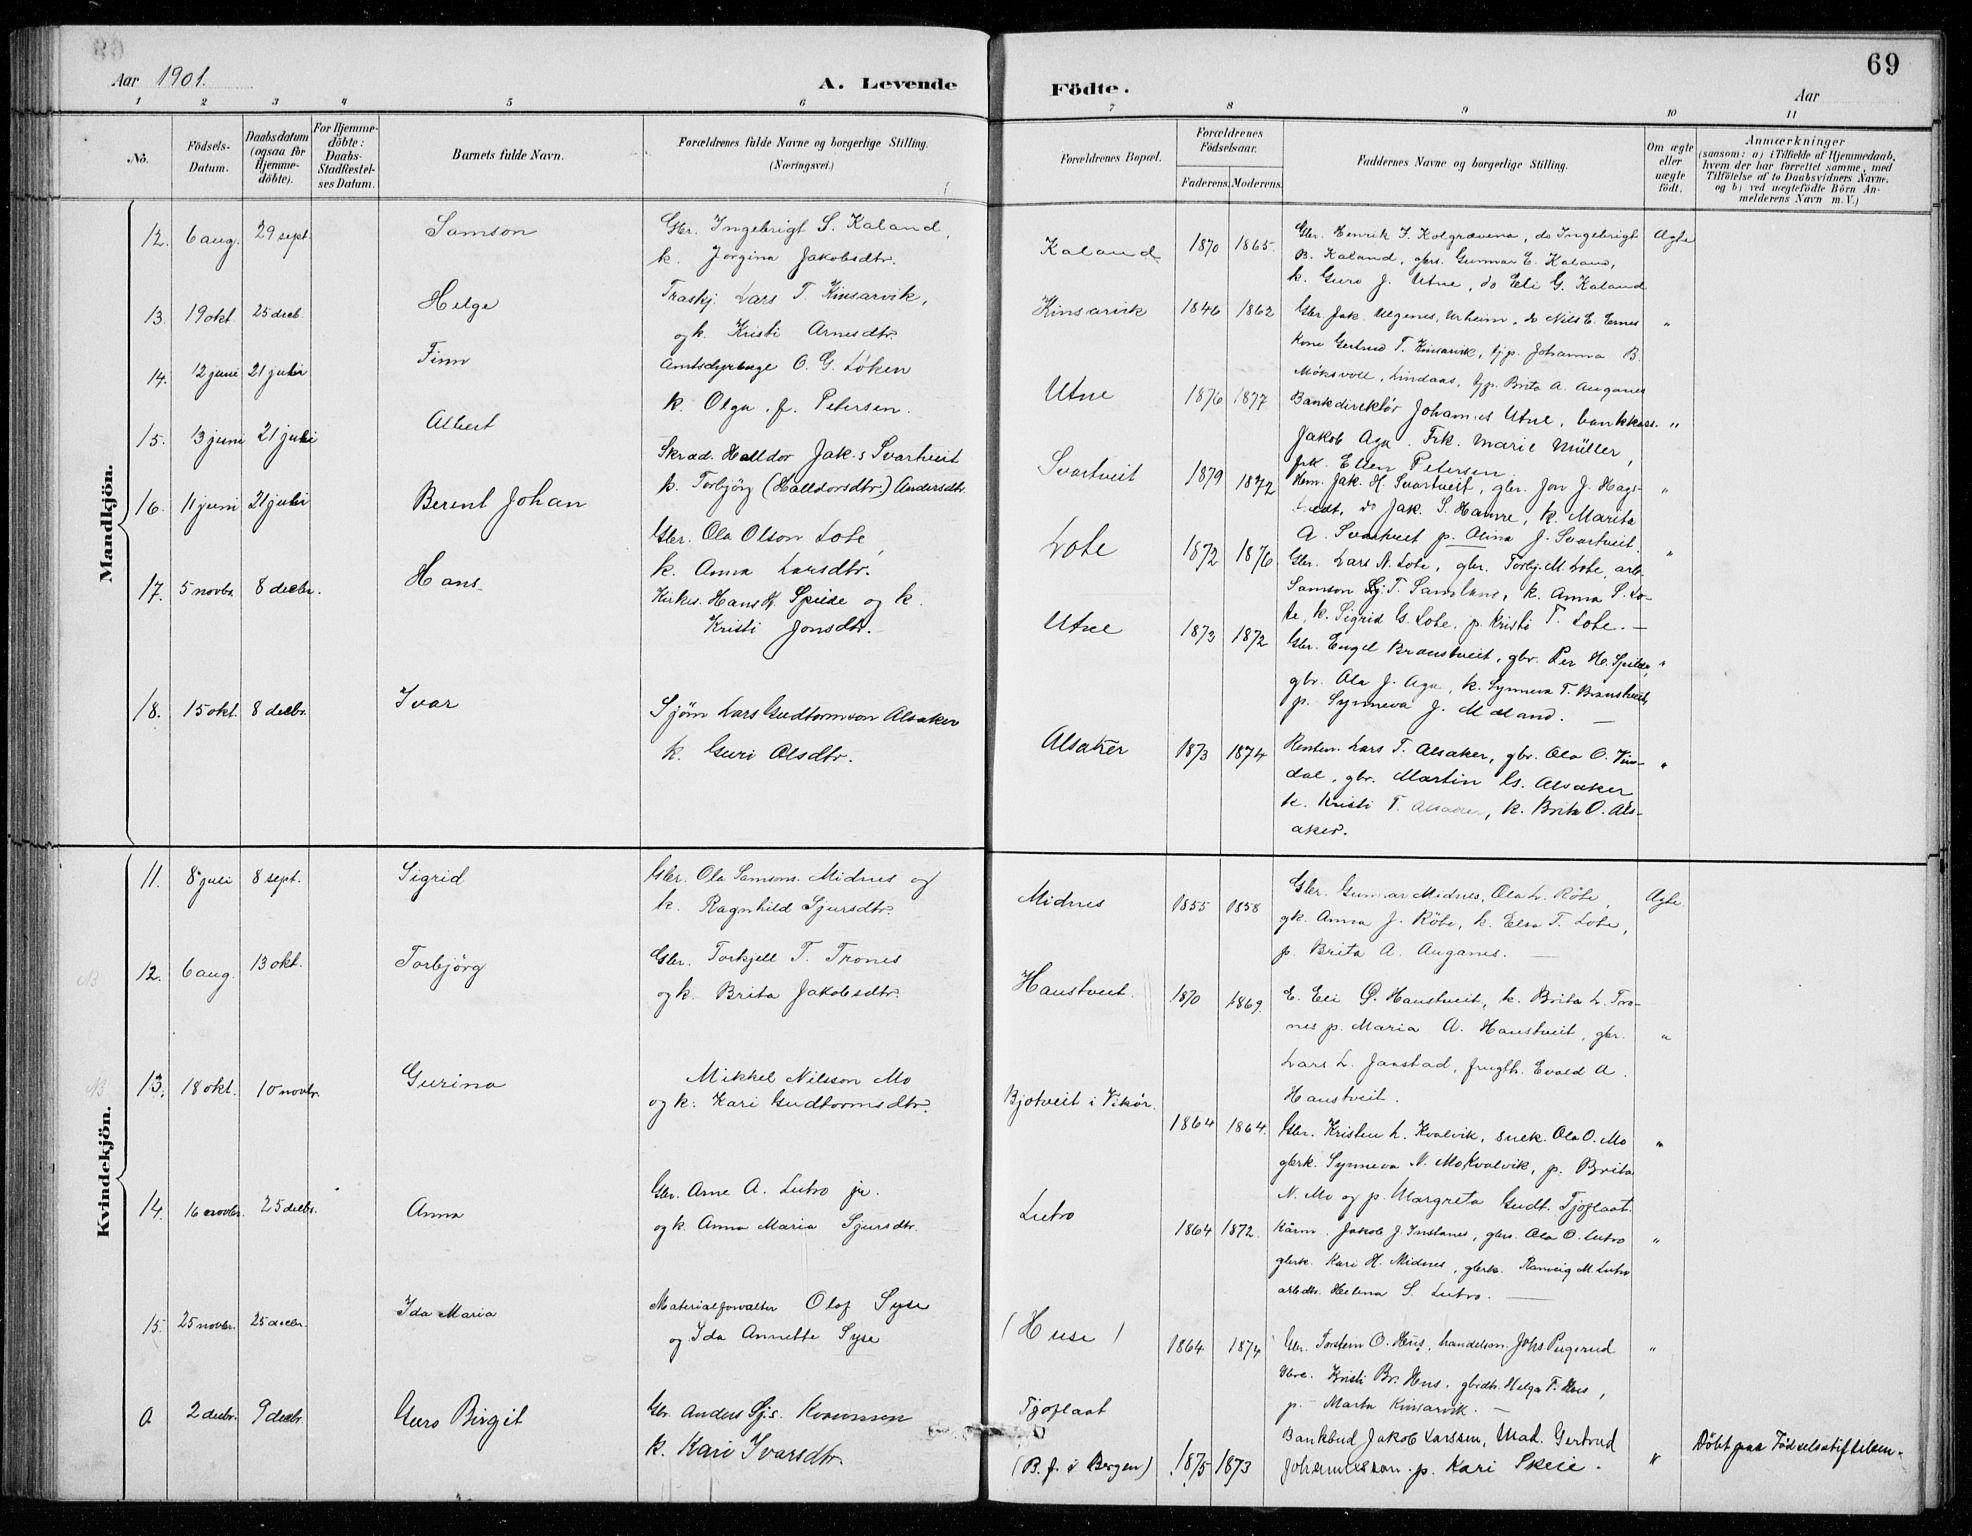 69
Aar 1901.
A. Levende Födte.
Aar
1 2 3 4 5 6 7 8 9 10 11
No.
Födsels-Datum.
Daabsdatum (ogsaa for Hjemme-döbte).
For Hjemme-döbte: Daabs-Stadfæstel-ses Datum.
Barnets fulde Navn.
Forældrenes fulde Navne og borgerlige Stilling. (Næringsvei.)
Forældrenes Bopæl.
Forældrenes Födselsaar.
Faderens. Moderens.
Faddernes Navne og borgerlige Stilling.
Om ægte eller uægte födt.
Anmærkninger
(saasom: a) i Tilfælde af Hjemmedaab,
hvem der har forrettet samme, med
Tilföielse af to Daabsvidners Navne,
og b) ved uægtefödte Börn An-
melderens Navn m. V.)
Mandkjön.
12. 6 aug. 29 sept. Samson
Gbr. Ingebrigt S. Kaland,
k. Jorgina Jakobsdtr.
Kaland 1870 1865.
Gbr. Henrik J. Kolgrævena, do Ingebrigt
B. Kaland, gbrs. Gunnar E. Kaland,
k. Guro J. Utne, do Eli G. Kaland
Ægte
13. 19 okt. 25 decb. Helge
Lars T. Kinsarvik,
og k. Kristi Arnesdtr.
Kinsarvik 1846 1862
Gbr. Jak. Urheim, do Nils E. Ernes
Kone Gertrud T. Kinsarvik, tjp. Johanna B.
Lindaas, tjp. Brita A. Auganes
"
14. 12 juni 21 juli Finn
O. G. Löken
k. Olga f. Petersen.
Utne 1876 1877
Bankdirektör Johannes Utne, bankkass.
Jakob Aga. Frk. Marie Müller,
frk. Ellen Petersen
"
15. 13 juni 21 juli Albert
Skræd. Halldor Jak.s Svartveit
k. Torbjörg (Halldorsdtr.) Andersdtr.
Svartveit 1879 1872
Jak. H. Svartveit, gbr. Jon J. Hags-
tvedt, do Jak. S. Hamre, k. Marita
A. Svartveit p. Olina J. Svartveit.
"
16. 11 juni 21 juli Berent Johan
Gbr. Ola Olson Lote,
k. Anna Larsdtr.
Lote 1872 1876
Gbr. Lars N. Lote, gbr. Torbj. M. Lote, arb.
Samson Sj. T. k. Anna S. Lo-
te, k. Sigrid G. Lote, p. Kristi T. Lote. —
"
17. 5 novbr. 8 decbr. Hans
Kirkes. Hans H. Spilde og k.
Kristi Jonsdtr.
Utne 1873 1872
Gbr. Engel Braastveit, gbr. Per H. Spilde,
gbr. Ola J. Aga, k. Synneva T. Braastveit,
p. Synneva J. Mæland. —
"
18. 15 okt. 8 decbr. Ivar
Sjöm Lars Gudtormson Alsaker
k. Guri Olsdtr.
Alsaker 1873 1874
Lars T. Alsaker, gbr. Ola O. Vin-
dal, gbr. Martin G. Alsaker
k. Kristi T. Alsaker, k. Brita O. Als-
aker.
"
Kvindekjön.
11. 8 juli 8 sept. Sigrid
Gbr. Ola Samsons. Midnes og
k. Ragnhild Sjursdtr.
Midnes 1855 1858
Gbr. Gunnar Midnes, Ola L. Röte,
gk. Anna J. Röte, k. Elsa T. Lote,
p. Brita A. Auganes. —
Ægte.
NB 12. 6 aug. 13 okt. Torbjörg
Gbr. Torkjell T. Trones
og k. Brita Jakobsdtr.
Haustveit. 1870 1869.
E. Eli Haustveit, k. Brita L. Tro-
nes p. Maria A. Haustveit, gbr.
Lars L. Jaastad, frugth. Evald A.
Haustveit.
"
NB 13. 18 okt. 10 novbr. Gurina
Mikkel Nilsson Mo
og k. Kari Gudtormsdtr.
Bjotveit i Vikör. 1864 1864.
Gbr. Kristen L. Kvalvik, snek. Ola O. Mo
gbrk. Synneva N. Mo Kvalvik, p. Brita
N. Mo og p. Margreta Gudt. Tjoflaat.
"
14. 16 novbr. 25 decbr. Anna
Gbr. Arne A. Lutro jr.
og k. Anna Maria Sjursdtr.
Lutro 1864 1872.
Jakob J. Instanes, gbrs. Ola O. Lutro
gbrk. Kari H. Midnes, gbrk. Ranveig M. Lutro
arbdtr. Helena S. Lutro. —
"
15. 25 novbr. 25 decbr. Ida Maria
Materialforvalter Olof Syse
og Ida Annette Syse
(Huse) 1864 1874
Gbr. Torstein O. Hus, handelsm. Johs Pugerud
Kristi Br. Hus, gbrdtr. Helga T. Hus,
p. Marta Kinsarvik. —
"
a 2 decbr. 9 decbr. Guro Birgit
Gbr. Anders Sjs. Kvamsen
k. Kari Ivarsdtr.
Tjoflaat
(B. f. i Bergen) 1875 1873
Bankbud Jakob Larssen, Mad. Gertrud
Johannesson. p. Kari Skeie.
"
Döbt paa Födselsstiftelsen.